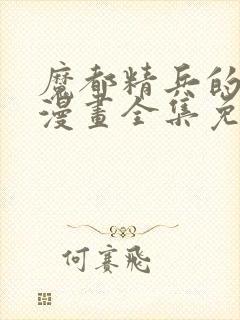 魔都精兵的
漫畫全集免
何賽飛